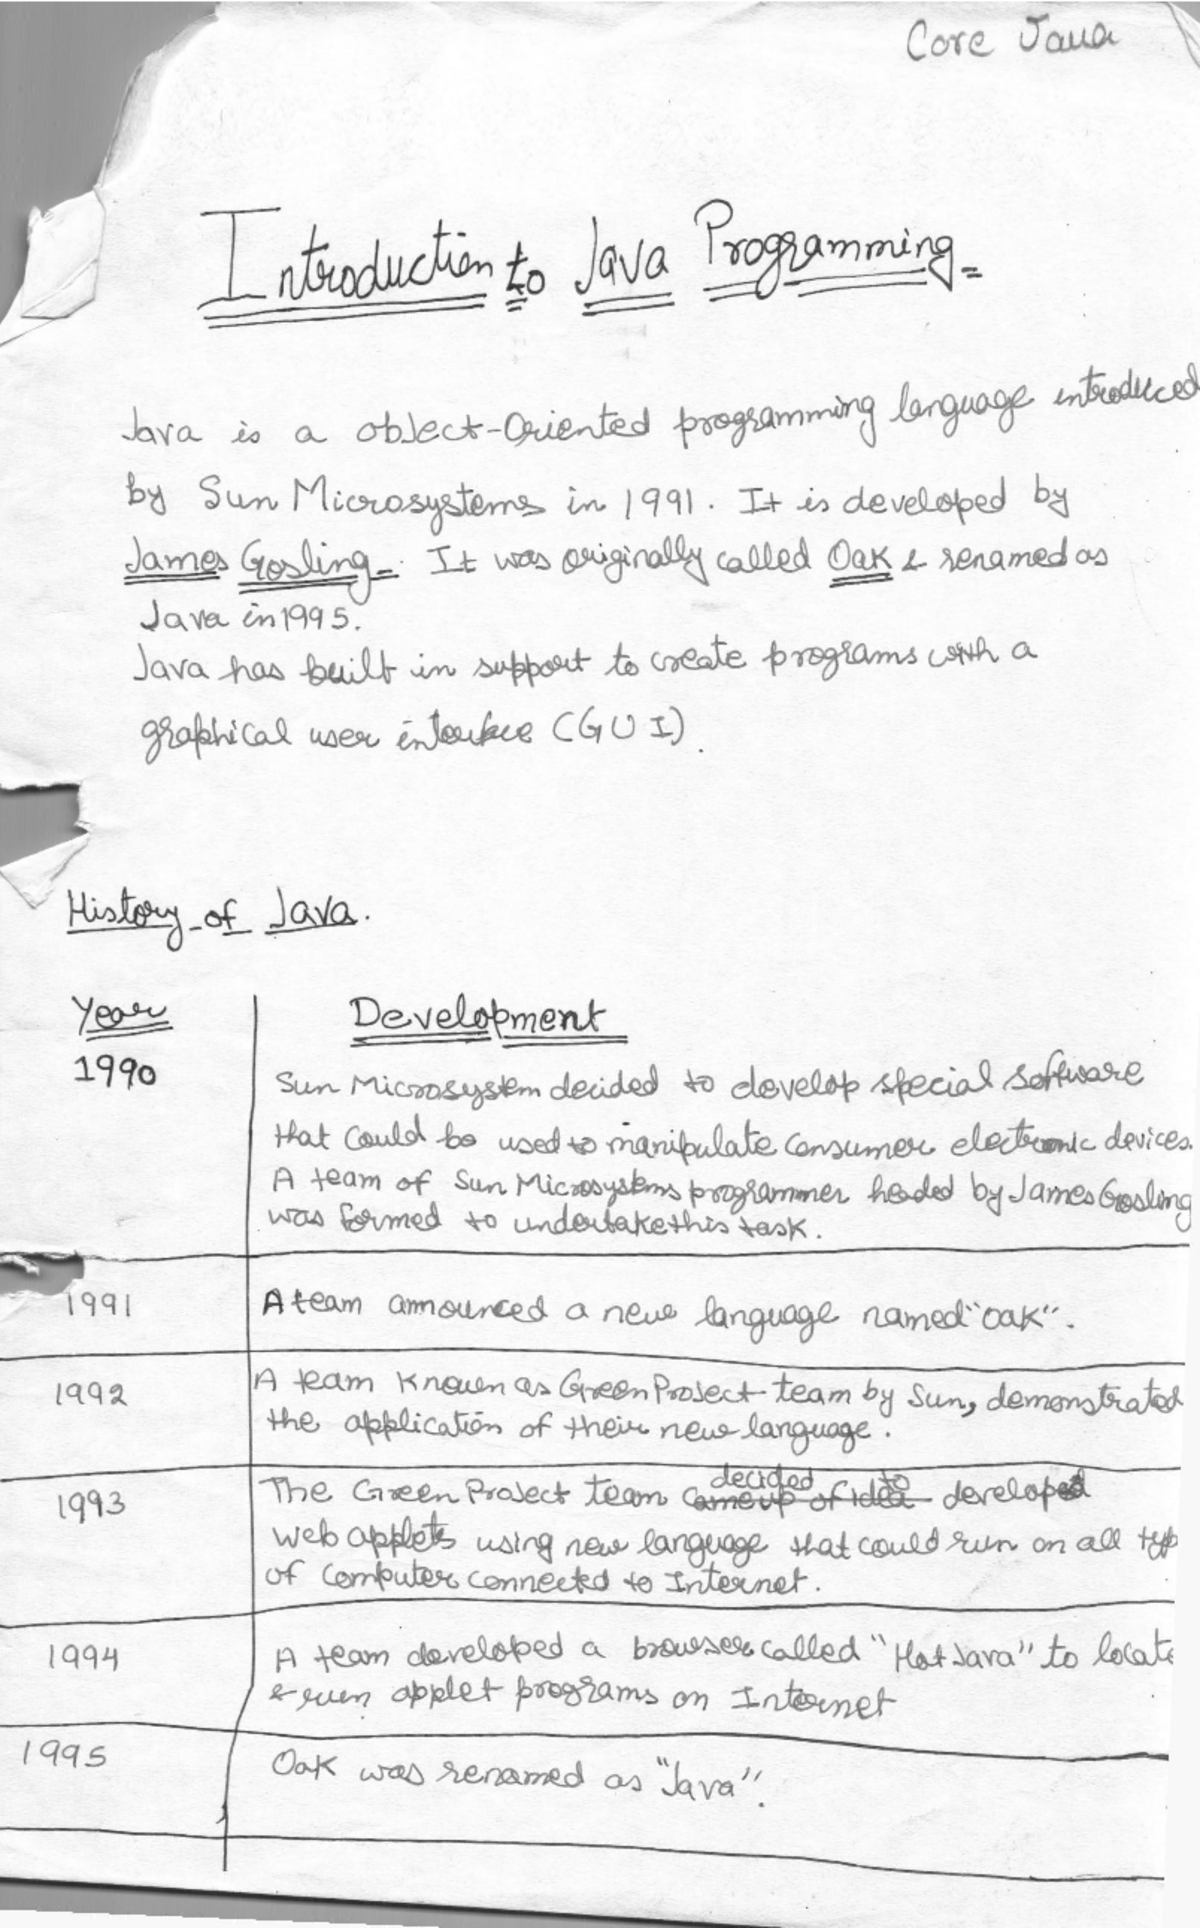 Core Java
Introduction to Java Programming
Java is a object-Oriented programming language introduced
by Sun Microsystems in 1991. It is developed by
James Gosling. It was originally called Oak & renamed as
Java in 1995.
Java has built in support to create programs with a
graphical user interface (GUI).
History of Java.
Year Development
1990 Sun Microsystem decided to develop special software
that could be used to manipulate consumer electronic devices.
A team of Sun Microsystems programmer headed by James Gosling
was formed to undertake this task.
1991 A team announced a new language named "Oak".
1992 A team known as Green Project team by Sun, demonstrated
the application of their new language.
decided to
1993 The Green Project team came up of idea developed
web applets using new language that could run on all typ
of computer connected to Internet.
1994 A team developed a browser called "Hot Java" to locate
& run applet programs on Internet
1995 Oak was renamed as "Java".